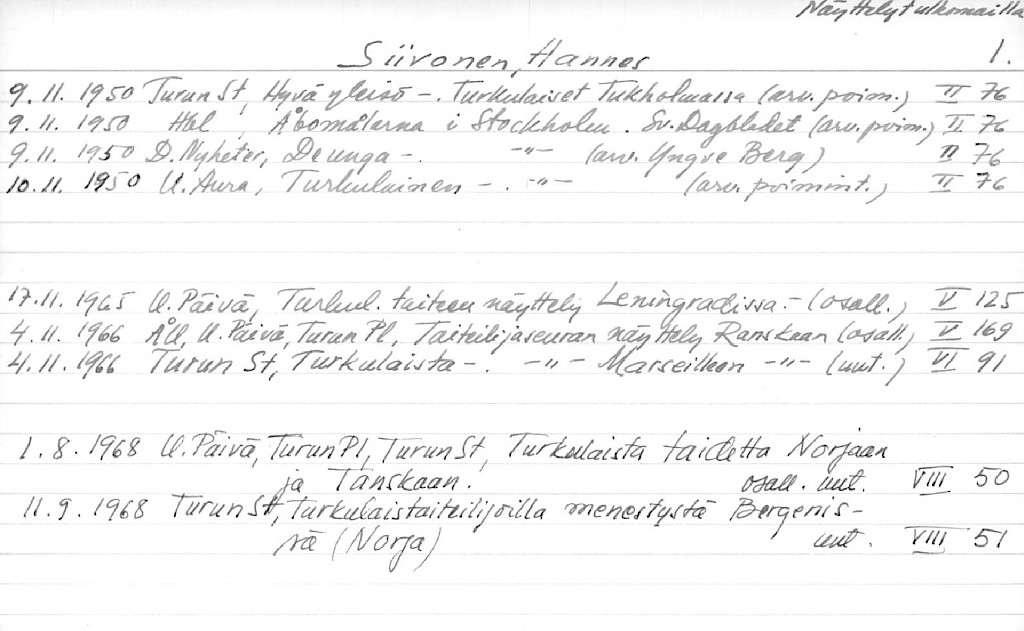 Näyttelyt ulkomailla
Siivonen, Hannes 1.
9.11.1950 Turun St, Hyvä yleisö -. Turkulaiset Tukholmassa (arv. poim.) II 76
9.11.1950 Hbl, Åbomålarna i Stockholm. Sv. Dagbladet (arv. poim.) II 76
9.11.1950 D. Nyheter, De unga -. -"- (arv. Yngve Berg) II 76
10.11.1950 U. Aura, Turkulainen -. -"- (arv. poimint.) II 76
17.11.1965 U. Päivä, Turkul. taiteen näyttely Leningradissa.- (osall.) V 125
4.11.1966 Åll, U. Päivä, Turun Pl, Taiteilijaseuran näyttely Ranskaan (osall.) V 169
4.11.1966 Turun St, Turkulaista -. -"- Marseilleen -"- (uut.) VI 91
1.8.1968 U. Päivä, Turun Pl, Turun St, Turkulaista taidetta Norjaan
ja Tanskaan. osall. uut. VIII 50
11.9.1968 Turun St, Turkulaistaiteilijoilla menestystä Bergenis-
sä (Norja) uut. VIII 51